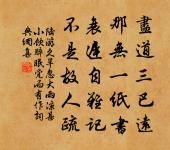 盡道三巴遠
那無一紙書
衰遲自難記
不是故人疏
陸游久旱忽大雨涼甚
小飲醉眠覺而有作詞
典網書